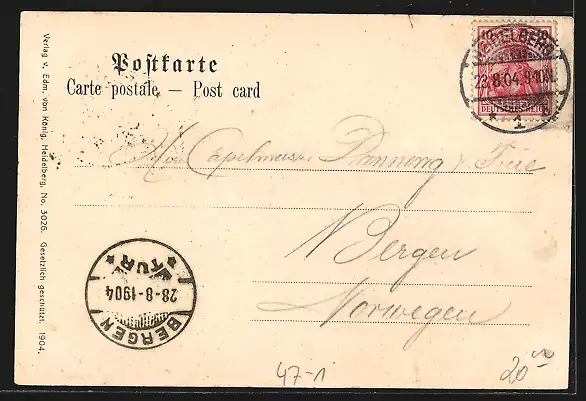 Postkarte
Carte postale. — Post card
HEIDELBERG
23.8.04. 9-10
* 1 *
10
DEUTSCHES REICH
Capelmusc
Bergen
Norwegen
BERGEN
28-8-1904
TUR
Verlag v. Edm. von König, Heidelberg, No. 3026. Gesetzlich geschützt. 1904.
47-1
20